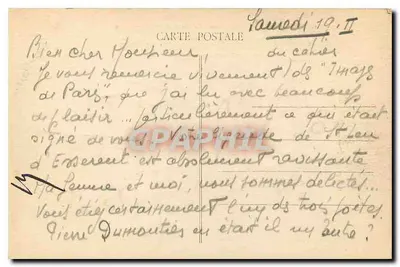 Samedi 19. II
CARTE POSTALE
Bien cher Monsieur
du cahier
Je vous remercie vivement des "Images
de Paris", que j'ai lu avec beaucoup
de plaisir... particulièrement ce qui était
signé de vous. Votre de St Leu
d'Esserent est absolument ravissante
Ma femme et moi, nous sommes délectés...
Vous étiez certainement l'un des trois poètes.
Pierre Dumontier en était il un autre ?
CPARAMA